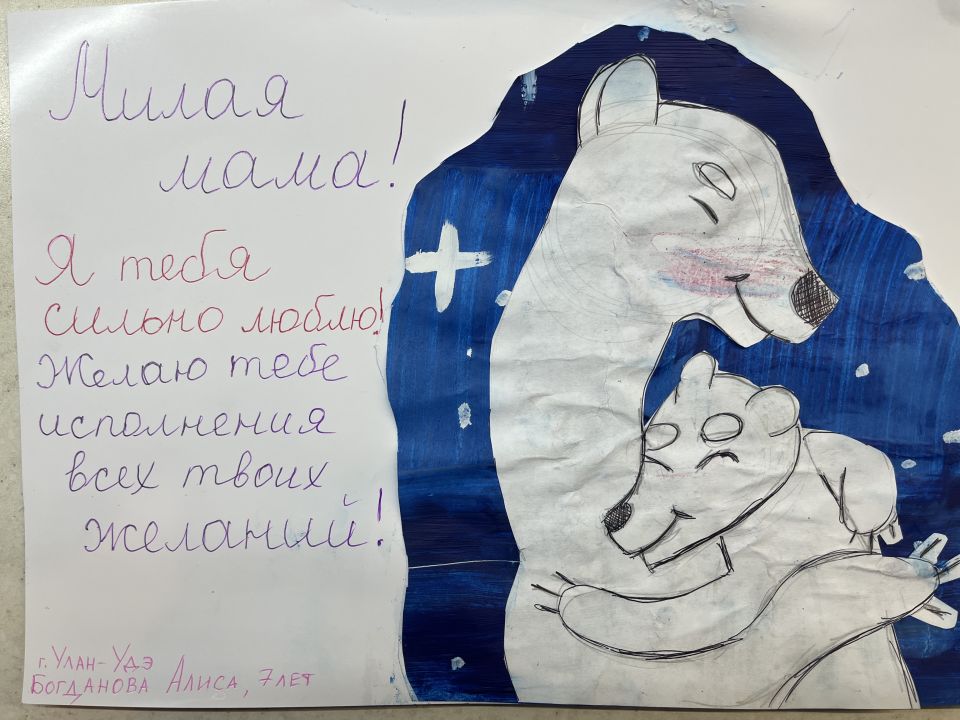 Милая
мама!
Я тебя
сильно люблю!
Желаю тебе
исполнения
всех твоих
желаний!
г. Улан-Удэ
Богданова Алиса, 7 лет